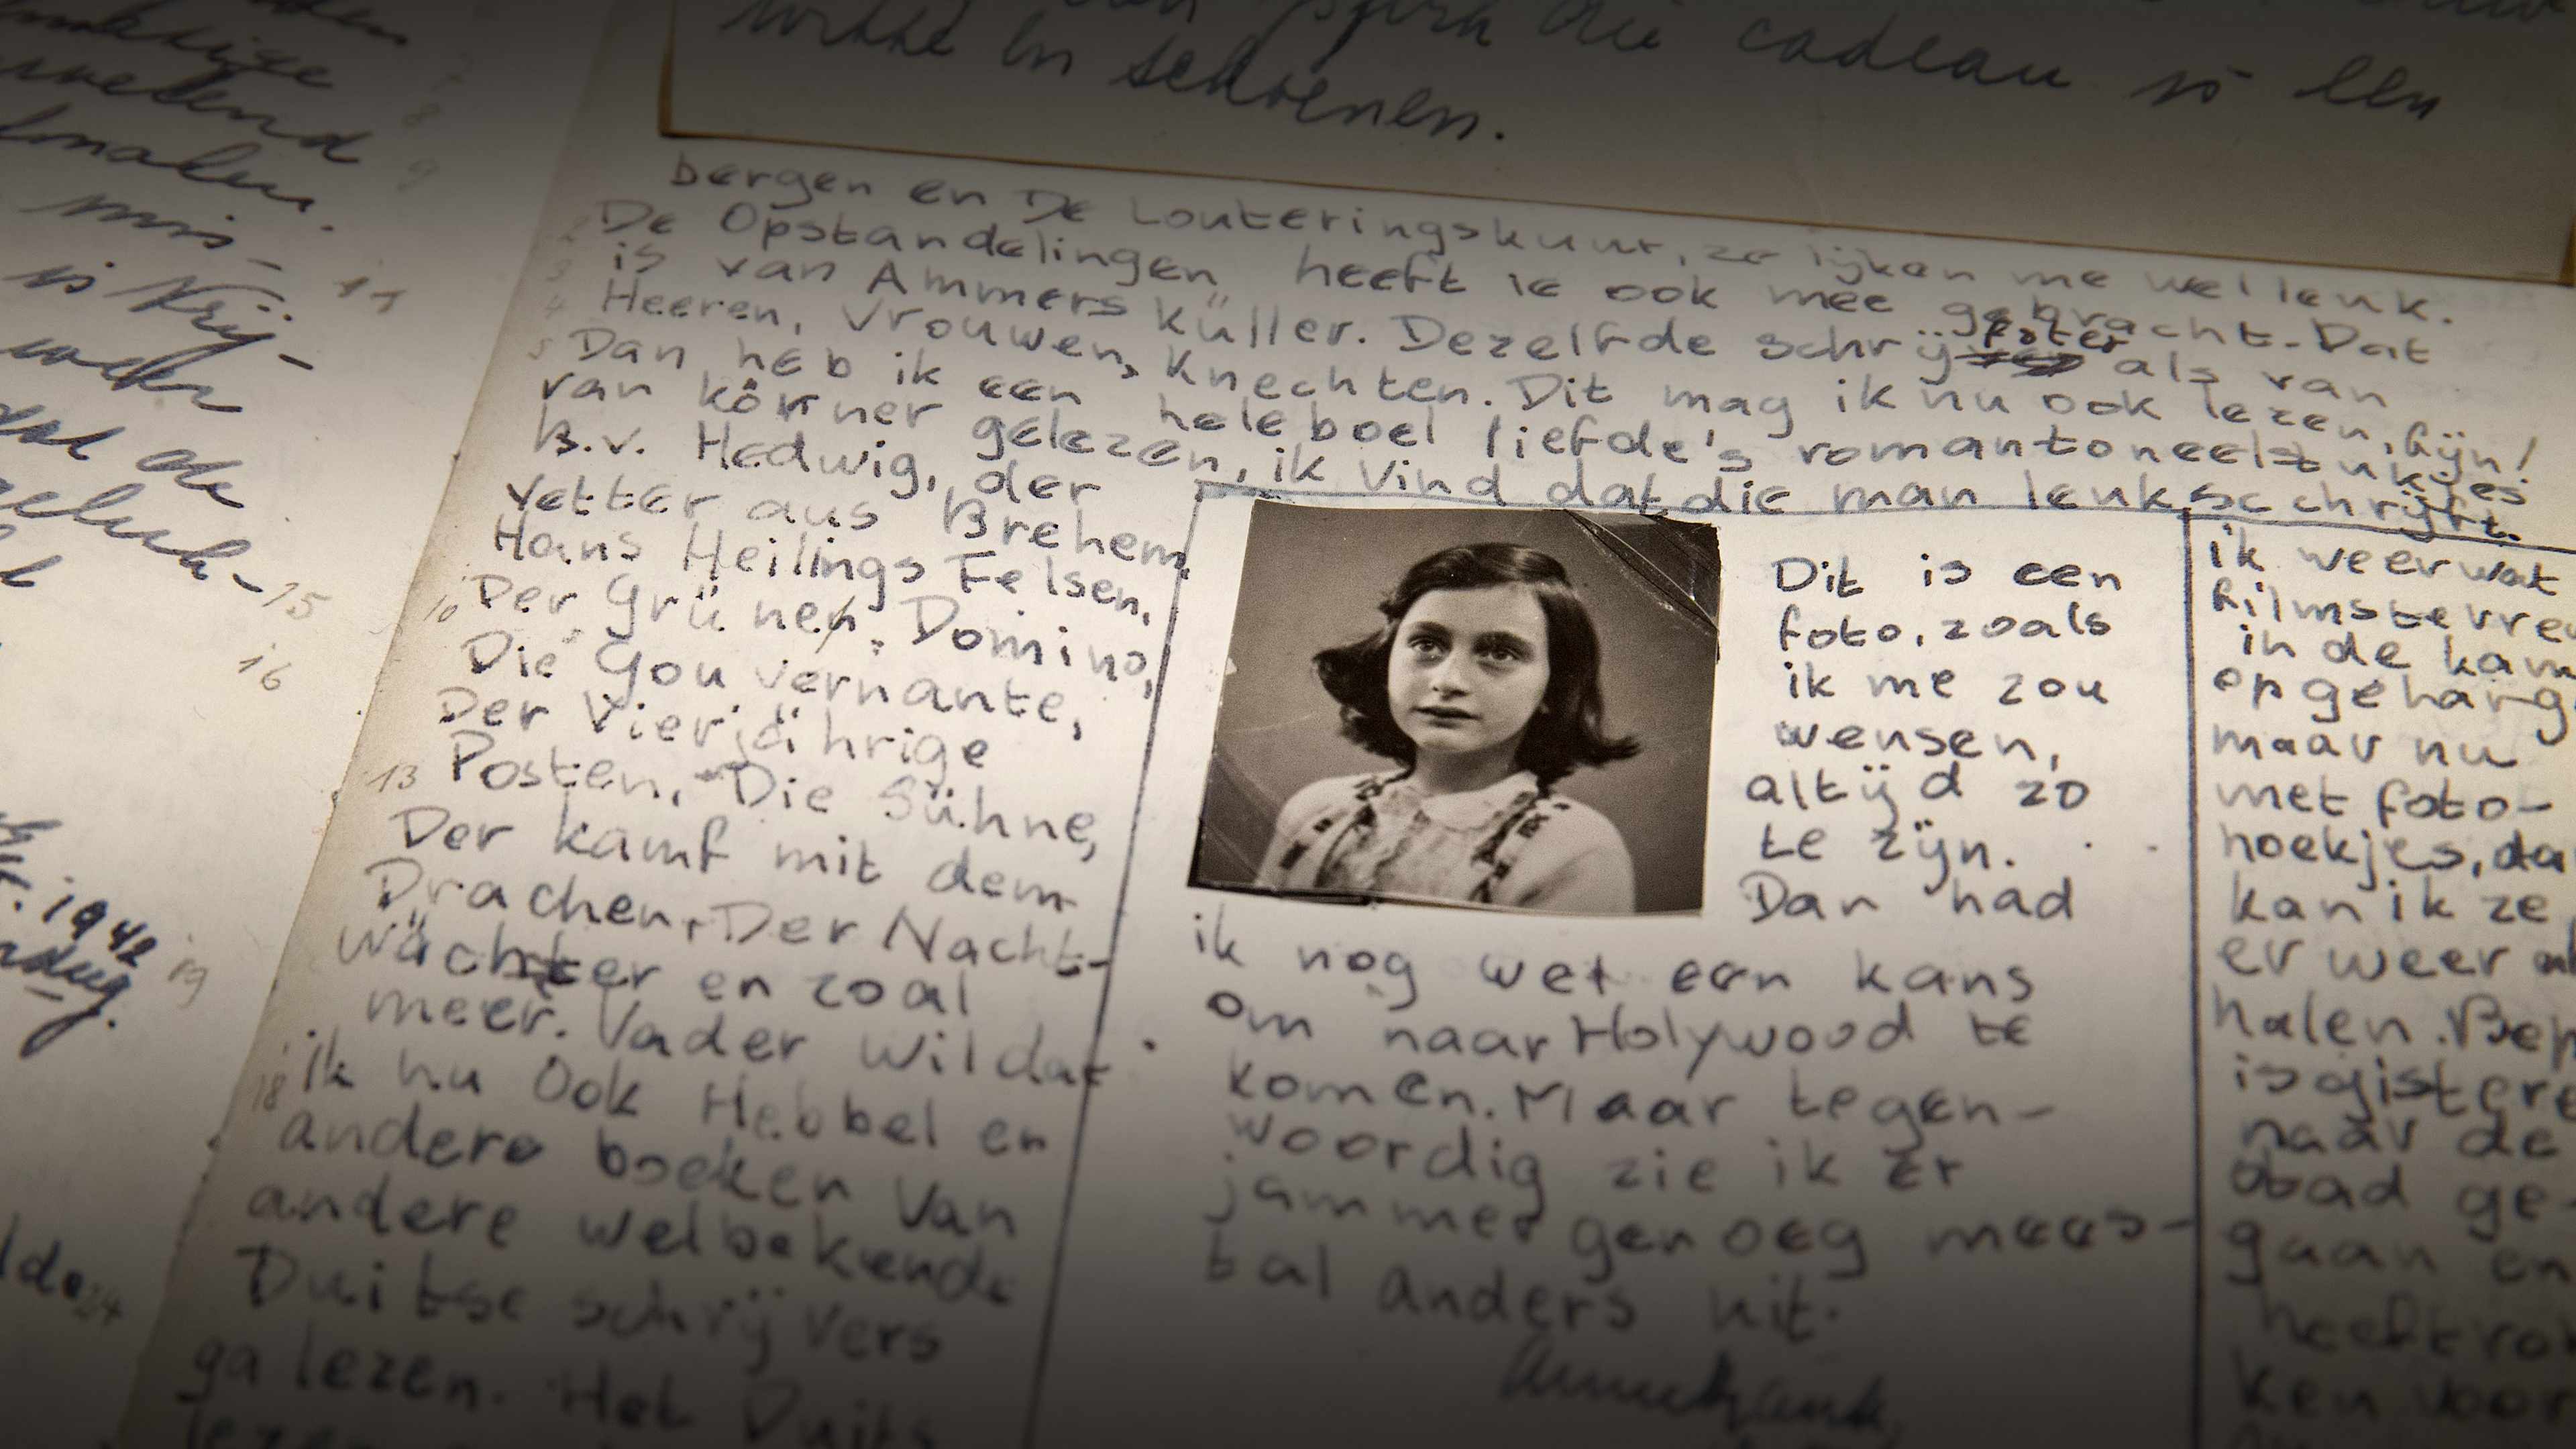 cadeau is een
witte in schoenen.
bergen en De Louteringskuur, ze lijken me wel leuk.
De Opstandelingen heeft ie ook mee gebracht. Dat
is van Ammers Küller. Dezelfde schrijfster als van
Heeren, Vrouwen, Knechten. Dit mag ik nu ook lezen, fijn!
Dan heb ik een heleboel liefde's romantoneelstukjes
van körner gelezen, ik vind dat die man leuk schrijft.
B.v. Hedwig, der
Vetter aus Brehem,
Hans Heilings Felsen,
Der Grüner Domino,
Die Gouvernante,
Der Vierjährige
Posten, Die Sühne,
Der kamf mit dem
Drachen, Der Nacht-
wächter en zoal
meer. Vader wil dat
ik nu Ook Hebbel en
andere boeken van
andere welbekende
Duitse schrijvers
ga lezen. Het Duits
lezen
Dit is een
foto, zoals
ik me zou
wensen,
altijd zo
te zijn.
Dan had
ik nog wel een kans
om naar Holywood te
komen. Maar tegen-
woordig zie ik er
jammer genoeg mees-
tal anders uit.
Annefrank
ik weer wat
filmsterren
in de kam
opgehang
maar nu
met foto-
hoekjes, da
kan ik ze
er weer af
halen. Bep
is gistere
naar de
stad ge-
gaan en
heeft rok
ken voor
mis-
is Vrij-
de
1942
10
11
13
15
16
18
19